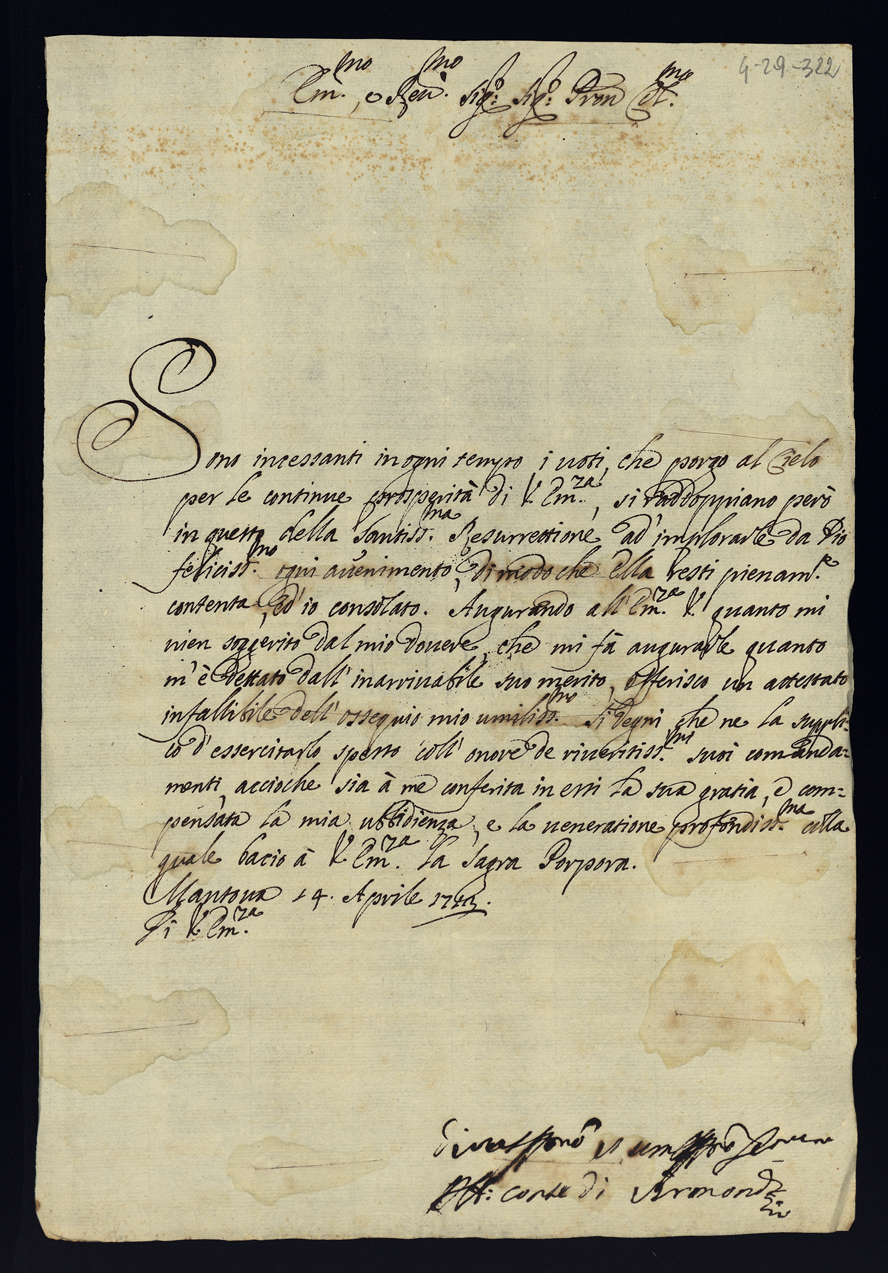 4-29-322
Em.mo, e Reu.mo Sig.r Sig.r Pron Col.mo
Sono incessanti in ogni tempo i uoti, che porgo al Cielo
per le continue prosperità di V. Em.za, si raddoppiano però
in questo della Santiss.ma Resurrettione ad' implorarle da Dio
feliciss.mo ogni auenimento, di modo che ella resti pienam.te
contenta, ed' io consolato. Augurando all' Em.za V. quanto mi
uien soggerito dal mio douere, che mi fà augurarle quanto
m' è dettato dall' inarriuabile suo merito, offerisco un attestato
infallibile dell' ossequio mio umiliss.mo Si degni che ne la suppli=
co d' essercitarlo spesso coll' onore de riueritiss.mi suoi comanda=
menti, accioche sia à me conferita in essi la sua gratia, e com=
pensata la mia ubbidienza, e la ueneratione profondiss.ma colla
quale bacio à V. Em.za la Sagra Porpora.
Mantoua 14. Aprile
Di V. Em.za
Conte di